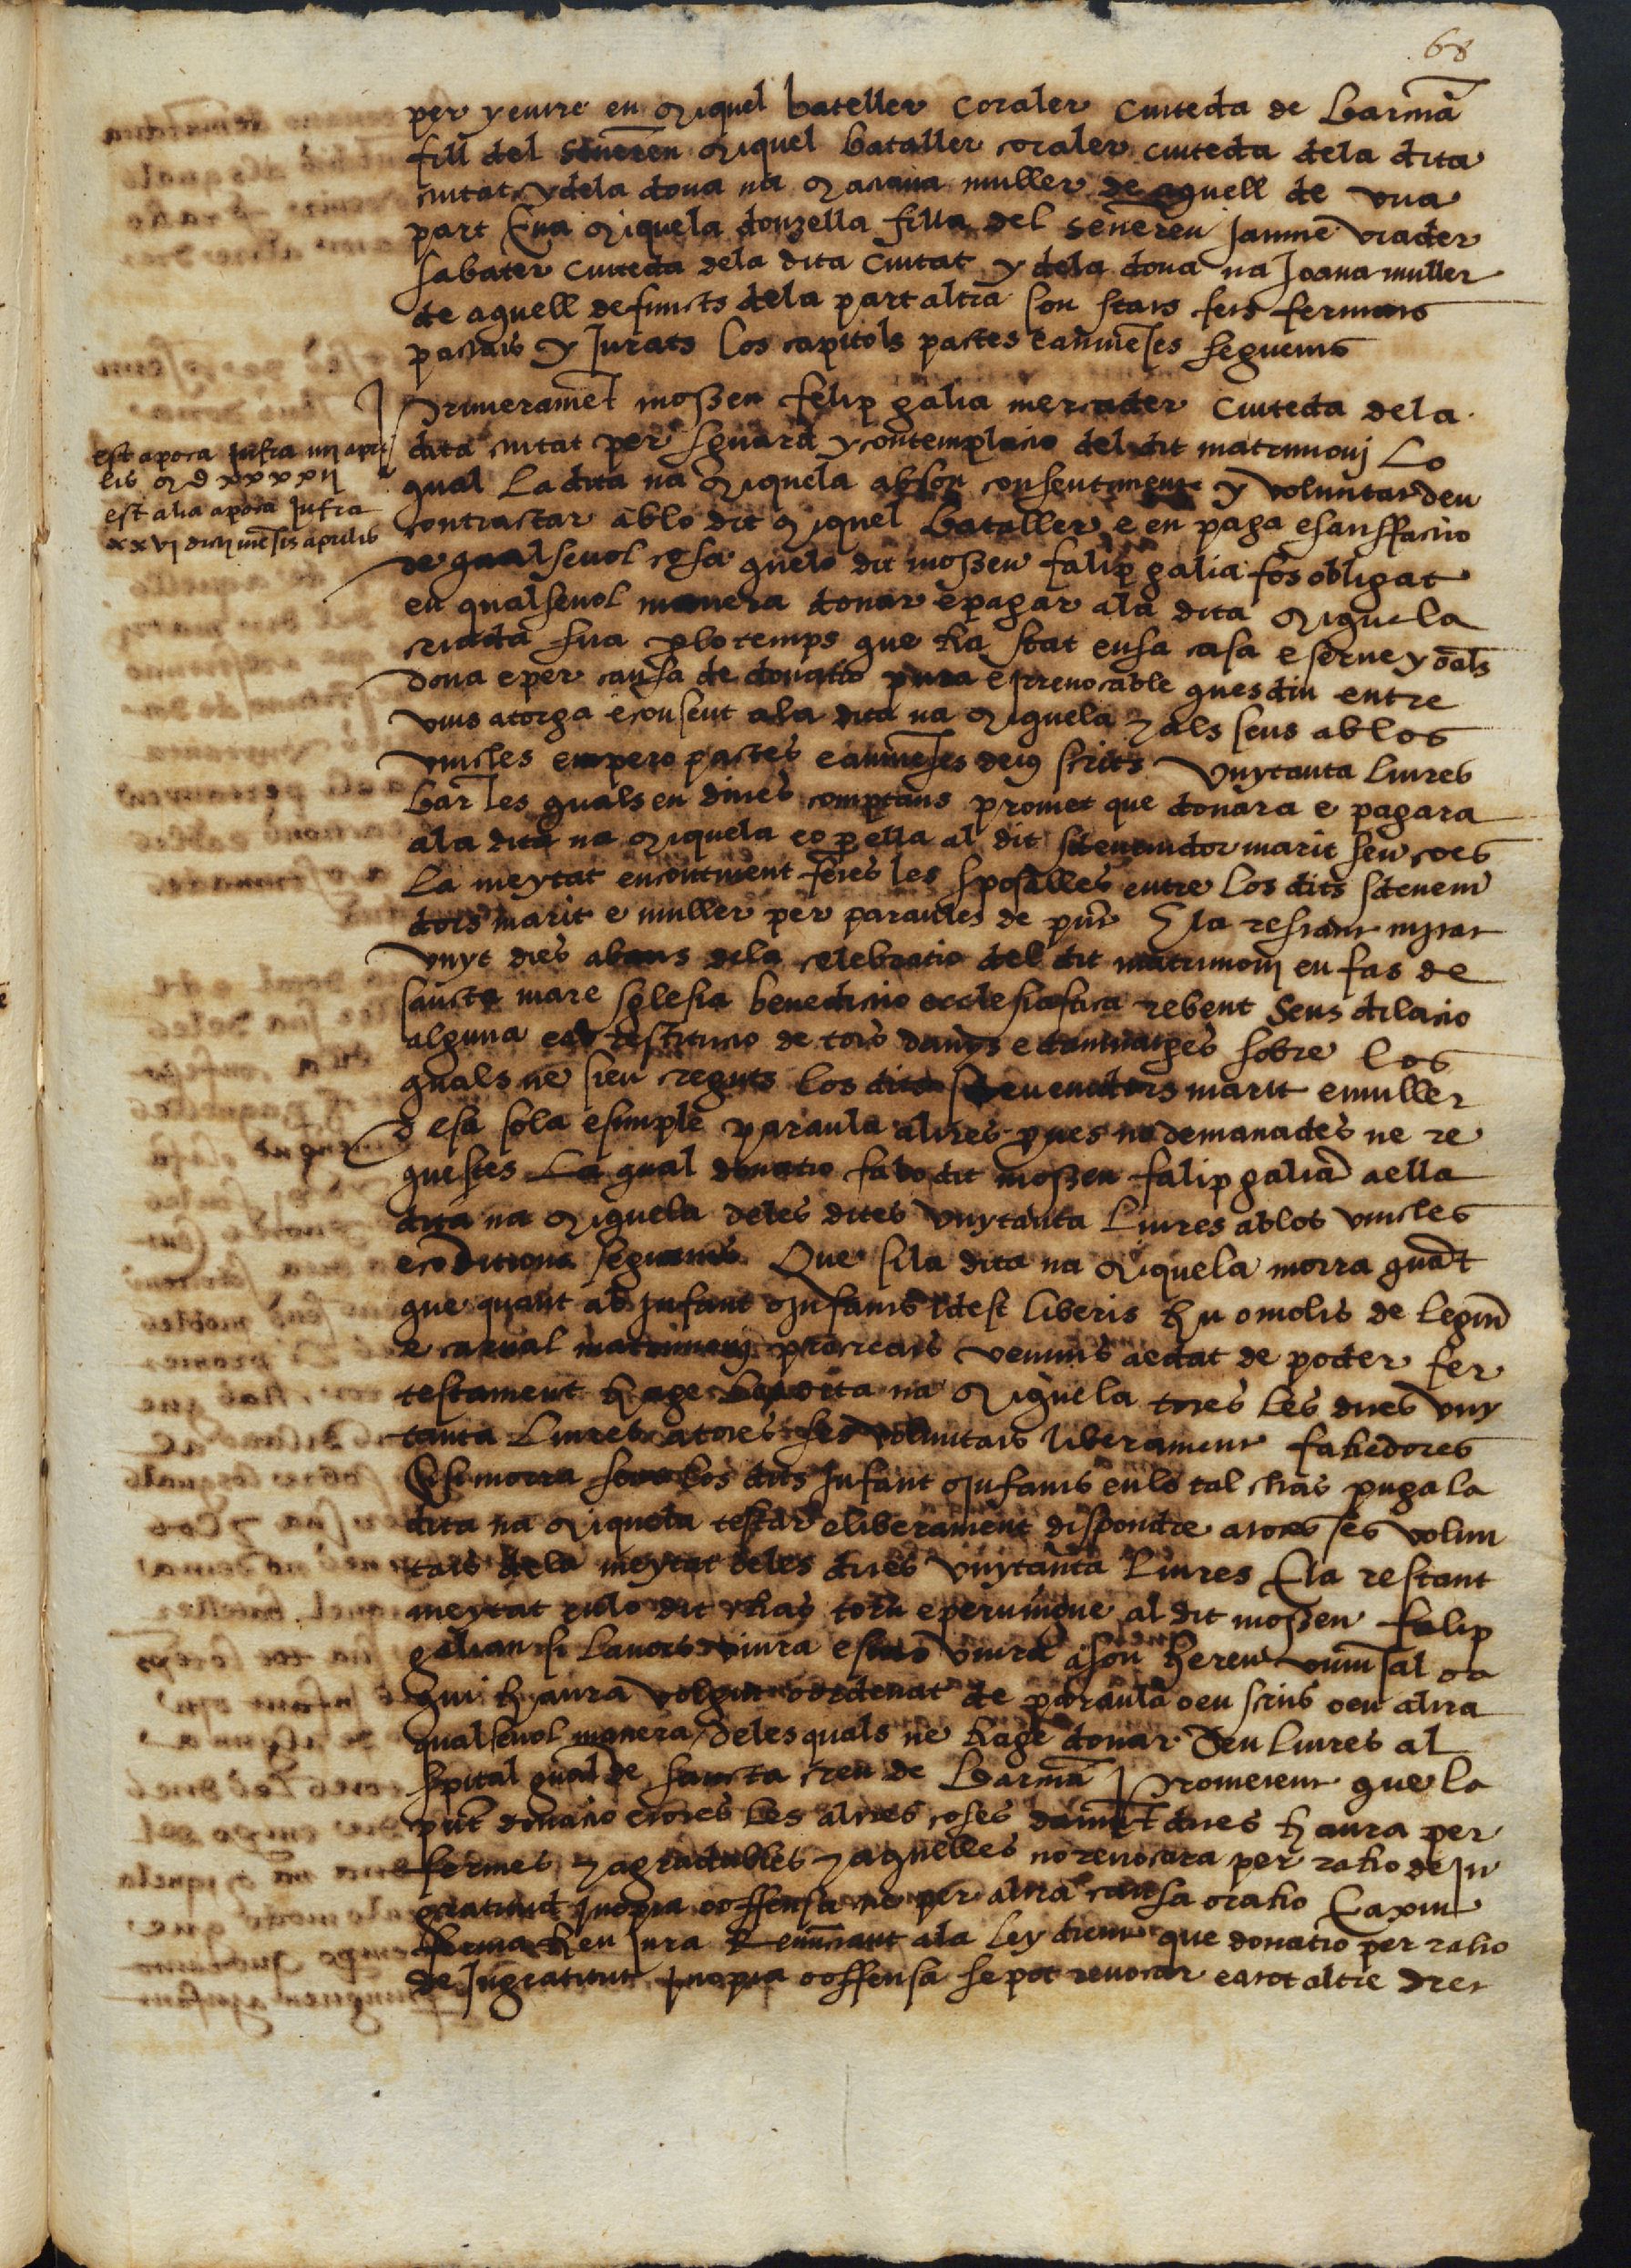 68
per y entre en Miquel bateller coraler ciuteda de Barcña
fill del señer en Miquel bataller coraler ciuteda dela dita
ciutat y dela dona na muller de aquell de vna
part E na Miquela donzella filla del señer en Jaume viader
sabater ciuteda dela dita ciutat y dela dona na Joana muller
de aquell defuncts dela part altra son stats fets fermats
pactats y Jurats los capitols pactes e auineses seguents
Primerament mossen felip galia mercader ciuteda dela
dita ciutat per sguard y contemplacio del dit matrimonj Lo
est apoca Infra iiij apri
lis M D xxxxij
est alia apoca Infra
xxvj dicti mensis aprilis
qual La dita na Miquela ab son consentiment y voluntat deu
contractar ab lo dit Miquel Bataller e en paga e satisffactio
de qualseuol cosa quelo dit mossen falip galia fos obligat
en qualseuol manera donar e pagar ala dita Miquela
criada sua p lo temps que ha stat en sa casa e seruey
dona e per causa de donatio pura e irreuocable ques diu entre
vius atorga e consent ala dita na Miquela y als seus ab los
vincles empero pactes e auineses deius scrits vuytanta liures
Bar les quals en dines comptans promet que donara e pagara
ala dita na Miquela eo p ella al dit sdeuenidor marit seu çoes
La meytat encontinent fetes les sposalles entre los dits sdeueni
dors marit e muller per paraules de pñt E la restant mytat
vuyt dies abans dela celebratio del dit matrimonj en fas de
sancta mare sglesia benedictio ecclesiastica rebent Sens dilatio
alguna e ab restitutio de tots danys e dampnatges sobre los
quals ne sien creguts los dits sdeuenidors marit e muller
de sa sola e simple paraula altres proues no demanades ne re
questes La qual donatio fa lo dit mossen falip galia a ella
dita na Miquela deles dites vuytanta Liures ab los vincles
e coditions seguents Que si la dita na Miquela morra quāt
que quant ab infant o infants idest liberis hu o molts de legm
e carnal matrimonj procreats venints a edat de poder fer
testament hage la dita na Miquela totes les dites vuy
tanta Liures a totes ses voluntats liberament fahedores
E si morra sens los dits Infant o Infants en lo tal chas puga la
dita na Miquela testar e liberament dispondre a totes ses volun
tats dela meytat deles dites vuytanta Liures E la restant
meytat en lo dit chas torn e peruingue al dit mossen falip
galian si lauors viura e si no viura a son hereu vniusal o a
qui haura volgut o ordenat de paraula o en scrits o en altra
qualseuol manera deles quals ne hage donar Deu liures al
spital gnal de sancta creu de Barcña Prometent que la
pñt donatio e totes les altres coses damūt dites haura per
fermes y agradables y aquelles no reuocara per raho de In
gratitud inopia o offensa ne per altra causa o raho E axi ne
ferma hen Jura Renūciant ala ley dient que donatio per raho
de Ingratitut inopia o offensa se pot reuocar e a tot altre dret